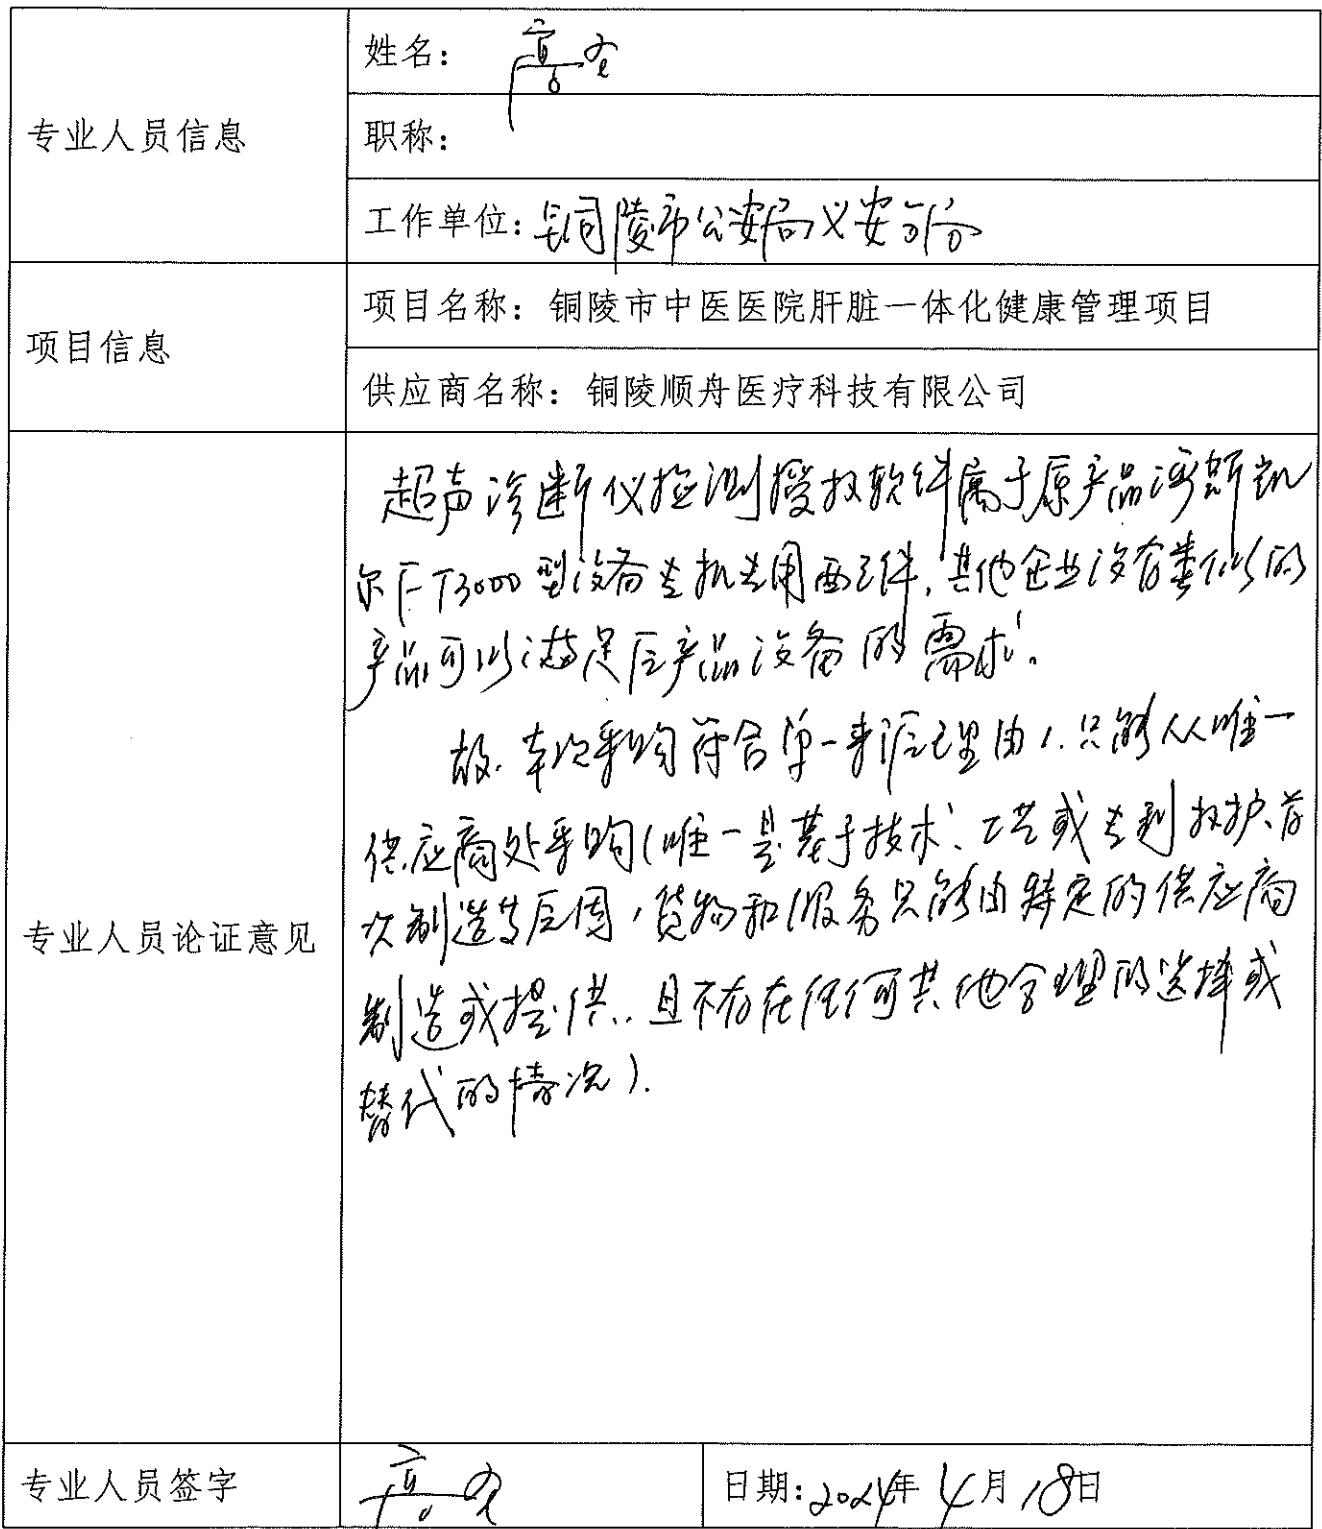 专业人员信息
姓名：高
职称：
工作单位：铜陵市公安局义安分局
项目信息
项目名称：铜陵市中医医院肝脏一体化健康管理项目
供应商名称：铜陵顺舟医疗科技有限公司
专业人员论证意见
超声诊断仪检测授权软件属于原产品海斯凯
尔FT3000型设备专机专用配件，其他企业没有类似的
产品可以满足原产品设备的需求。
故，本次采购符合单一来源理由1.只能从唯一
供应商处采购（唯一是基于技术、工艺或专利权护、首
次制造等原因，货物和服务只能由特定的供应商
制造或提供，且不存在任何其他合理的选择或
替代的情况）.
专业人员签字
高
日期：2024年4月18日